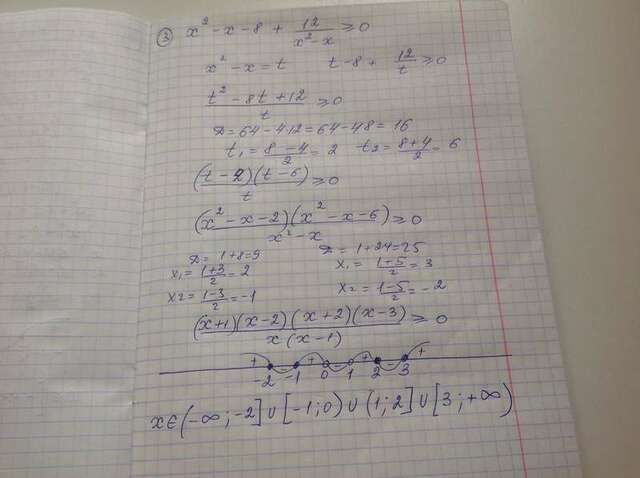 ③ x² - x - 8 + 12/(x² - x) ≥ 0
x² - x = t t - 8 + 12/t ≥ 0
(t² - 8t + 12)/t ≥ 0
D = 64 - 4·12 = 64 - 48 = 16
t₁ = (8 - 4)/2 = 2 t₂ = (8 + 4)/2 = 6
(t - 2)(t - 6)/t ≥ 0
(x² - x - 2)(x² - x - 6)/(x² - x) ≥ 0
D = 1 + 8 = 9 D = 1 + 24 = 25
x₁ = (1 + 3)/2 = 2 x₁ = (1 + 5)/2 = 3
x₂ = (1 - 3)/2 = -1 x₂ = (1 - 5)/2 = -2
(x + 1)(x - 2)(x + 2)(x - 3)/(x(x - 1)) ≥ 0
+ - + - + - +
-2 -1 0 1 2 3
x ∈ (-∞; -2] ∪ [-1; 0) ∪ (1; 2] ∪ [3; +∞)